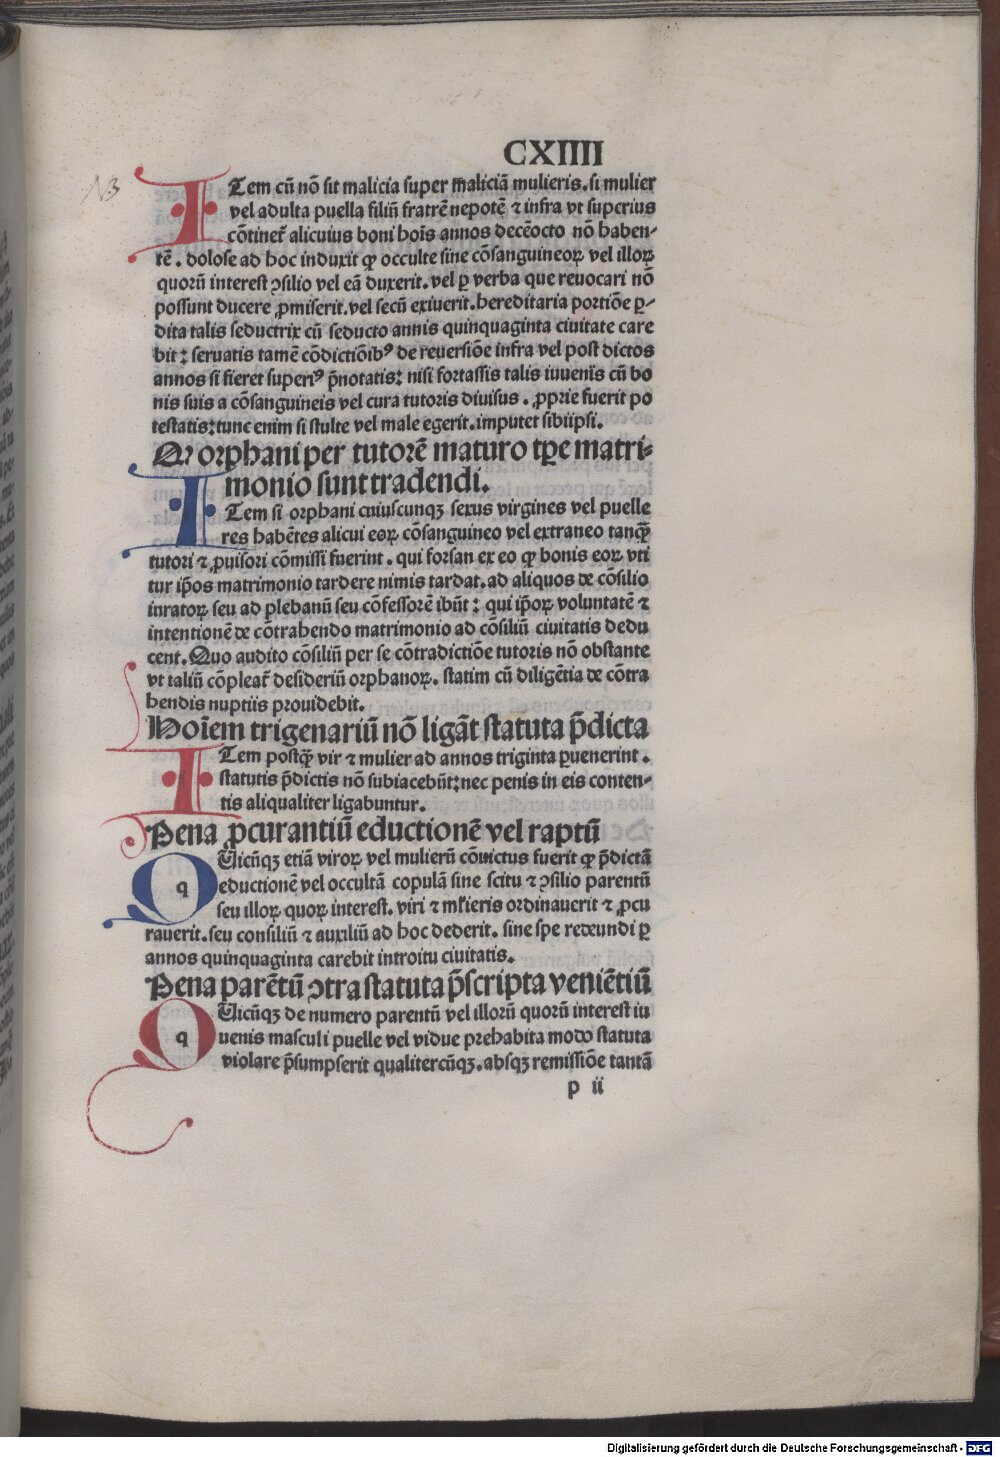 CXIIII
13
ITem cū nō sit malicia super maliciā mulieris. si mulier
vel adulta puella filiū fratrē nepotē ⁊ infra vt superius
cōtinet᷑ alicuius boni hoīs annos decēocto nō haben⸗
tē. dolose ad hoc induxit ꝙ occulte sine cōsanguineoꝝ vel illoꝝ
quorū interest ↄsilio vel eā duxerit. vel ꝑ verba que reuocari nō
possunt ducere ꝓmiserit. vel secū exiuerit. hereditaria portiōe ꝑ⸗
dita talis seductrix cū seducto annis quinquaginta ciuitate care
bit: seruatis tamē cōdictiōibꝰ de reuersiōe infra vel post dictos
annos si fieret superiꝰ p̄notatis: nisi fortassis talis iuuenīs cū bo
nis suis a cōsanguineis vel cura tutoris diuisus. ꝓprie fuerit po
testatis: tunc enim si stulte vel male egerit. imputet sibiipsi.
Qꝛ orphani per tutorē maturo tꝑe matri⸗
monio sunt tradendi.
ITem si orphani cuiuscunqꝫ sexus virgines vel puelle
res habētes alicui eoꝝ cōsanguineo vel extraneo tanqꝫ̄
tutori ⁊ ꝓuisori cōmissi fuerint. qui forsan ex eo ꝙ bonis eoꝝ vti
tur ip̄os matrimonio tardere nimis tardat. ad aliquos de cōsilio
iuratoꝝ seu ad plebanū seu cōfessorē ibūt: qui ip̄oꝝ voluntatē ⁊
intentionē de cōtrahendo matrimonio ad cōsiliū ciuitatis dedu
cent. Quo audito cōsiliū per se cōtradictiōe tutoris nō obstante
vt taliū cōpleat᷑ desideriū orphanoꝝ. statim cū diligētia de cōtra
hendis nuptiis prouidebit.
Hoīem trigenariū nō ligāt statuta p̄dicta
ITem postqꝫ̄ vir ⁊ mulier ad annos triginta ꝑuenerint.
statutis p̄dictis nō subiacebūt: nec penis in eis conten⸗
tis aliqualiter ligabuntur.
Pena ꝓcurantiū eductionē vel raptū
q
QUicūqꝫ etiā viroꝝ vel mulierū cōuictus fuerit ꝙ p̄dictā
eductionē vel occultā copulā sine scitu ⁊ ↄsilio parentū
seu illoꝝ quoꝝ interest. viri ⁊ mĺieris ordinauerit ⁊ ꝓcu
rauerit. seu consiliū ⁊ auxiliū ad hoc dederit. sine spe redeundi ꝑ
annos quinquaginta carebit introitu ciuitatis.
Pena parētū ↄtra statuta p̄scripta veniētiū
q
QUicūqꝫ de numero parentū vel illorū quorū interest iu
uenis masculi puelle vel vidue prehabita modo statuta
violare p̄sumpserit qualitercūqꝫ. absqꝫ remissiōe tantā
p ii
Digitalisierung gefördert durch die Deutsche Forschungsgemeinschaft - DFG